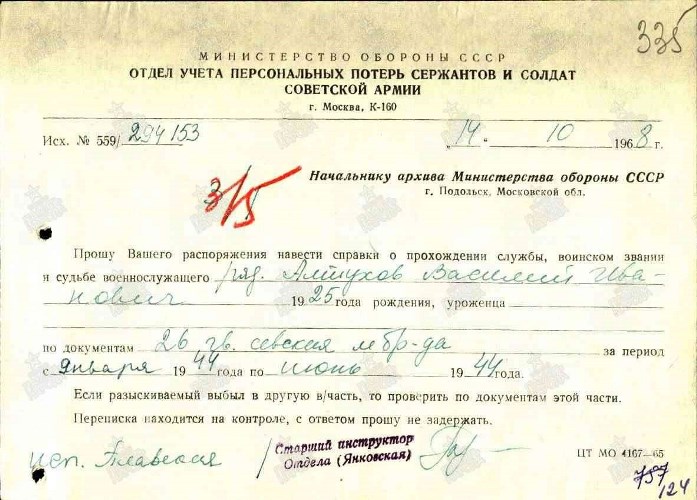 335
МИНИСТЕРСТВО ОБОРОНЫ СССР
ОТДЕЛ УЧЕТА ПЕРСОНАЛЬНЫХ ПОТЕРЬ СЕРЖАНТОВ И СОЛДАТ
СОВЕТСКОЙ АРМИИ
г. Москва, К-160
Исх. № 559/294153 „14" 10 1968 г.
3/5
Начальнику архива Министерства обороны СССР
г. Подольск, Московской обл.
Прошу Вашего распоряжения навести справки о прохождении службы, воинском звании
и судьбе военнослужащего ряд. Алтухов Василий Ива-
нович 1925 года рождения, уроженца
по документам 26 гв. севская мбр-да за период
с января 1944 года по июнь 1944 года.
Если разыскиваемый выбыл в другую в/часть, то проверить по документам этой части.
Переписка находится на контроле, с ответом прошу не задержать.
исп. Старший инструктор
Отдела (Янковская) ЦТ МО 4167—65
757
124